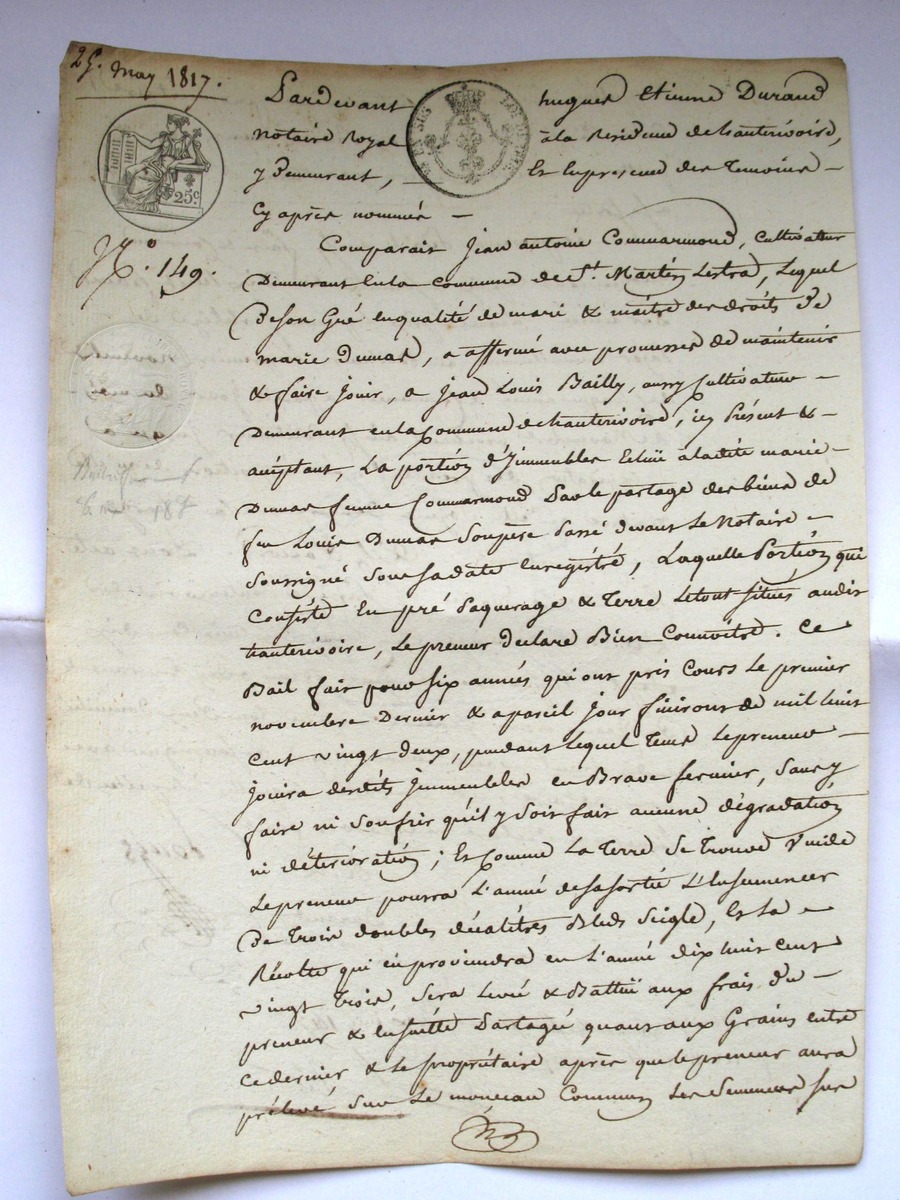 25. May 1817.
Pardevant hugues Etienne Durand
notaire Royal à la Residence de chanterivoire,
y Demeurant, Et En presence des Temoins
Cy après nommés
25c
N.º 149.
Comparait Jean antoine Commarmond, Cultivateur
Demeurant En la Commune de St. Martin Lestra, Lequel
De son Gré en qualité de mari & maitre des droits De
marie Dumas, a affermé avec promesses de maintenir
& faire Jouir, a Jean Louis Bailly, aussy Cultivateur
Demeurant en la Commune de chanterivoire, icy Présent &
acéptant, La portion d'Jmmeubles Echüe à ladite marie
Dumas femme Commarmond Par le partage des biens de
feu Louis Dumas Son père Passé devant Le Notaire
Soussigné Sous sa date Enregistré, Laquelle Portion qui
Consiste En pré Paquerage & Terre Le tout Situés audit
hanterivoire, Le preneur declare Bien Connoitre. Ce
Bail fait pour Six années qui ont pris Cours Le premier
novembre Dernier & a pareil Jour finiront de mil huit
Cent vingt deux, pendant Lequel Tems Le preneur
Jouira desdits Jmmeubles en Brave fermier, Sans y
faire ni Soufrir qu'il y Soit fait aucune dégradation
ni déterioration ; Et Comme La Terre Se Trouve Vuide
Le preneur pourra L'année de Sa Sortie L'Ensemencer
De Trois doubles décalitres Bleds Seigle, Et La
Récolte qui en proviendra en L'année dix huit Cent
vingt Trois, Sera Levée & Battüe aux frais du
preneur & Ensuitte Partagée quant aux Grains entre
Ce dernier & Le propriétaire après que le preneur aura
prélevé Sur Le monceau Commun Les Semences Sur